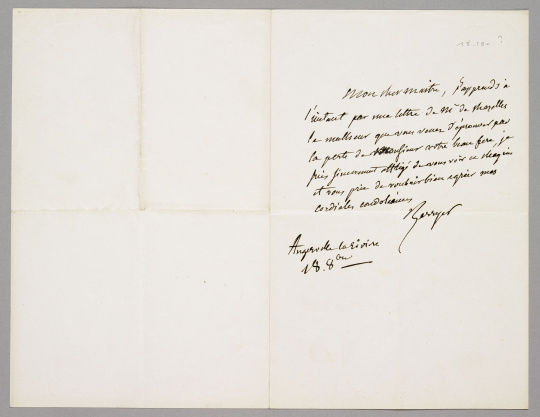 18.10
Mon cher maître, J'apprends à
l'instant par une lettre de Mr de
le malheur que vous venez d'éprouver par
la perte de Monsieur votre beau frère, je
suis sincèrement affligé de vous voir ce chagrin
et vous prie de vouloir bien agréer mes
cordiales condoléances
Berryer
Angerville la rivière
18. 8bre